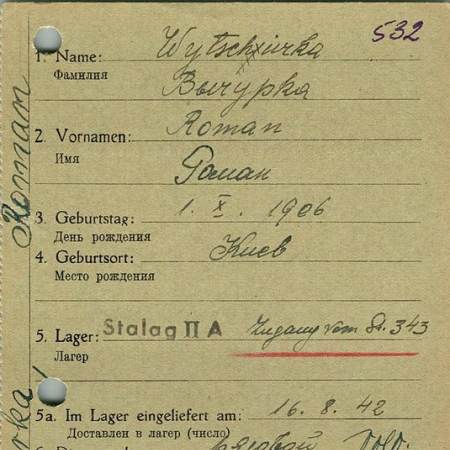 532
1. Name: Wytschxurka
Фамилия Вычурка
2. Vornamen: Roman
Имя Роман
3. Geburtstag: 1. X. 1906
День рождения
4. Geburtsort: Киев
Место рождения
5. Lager: Stalag II A Zugang vom St. 343
Лагерь
5a. Im Lager eingeliefert am: 16. 8. 42
Доставлен в лагерь (число)
рядовой Sold.
Roman